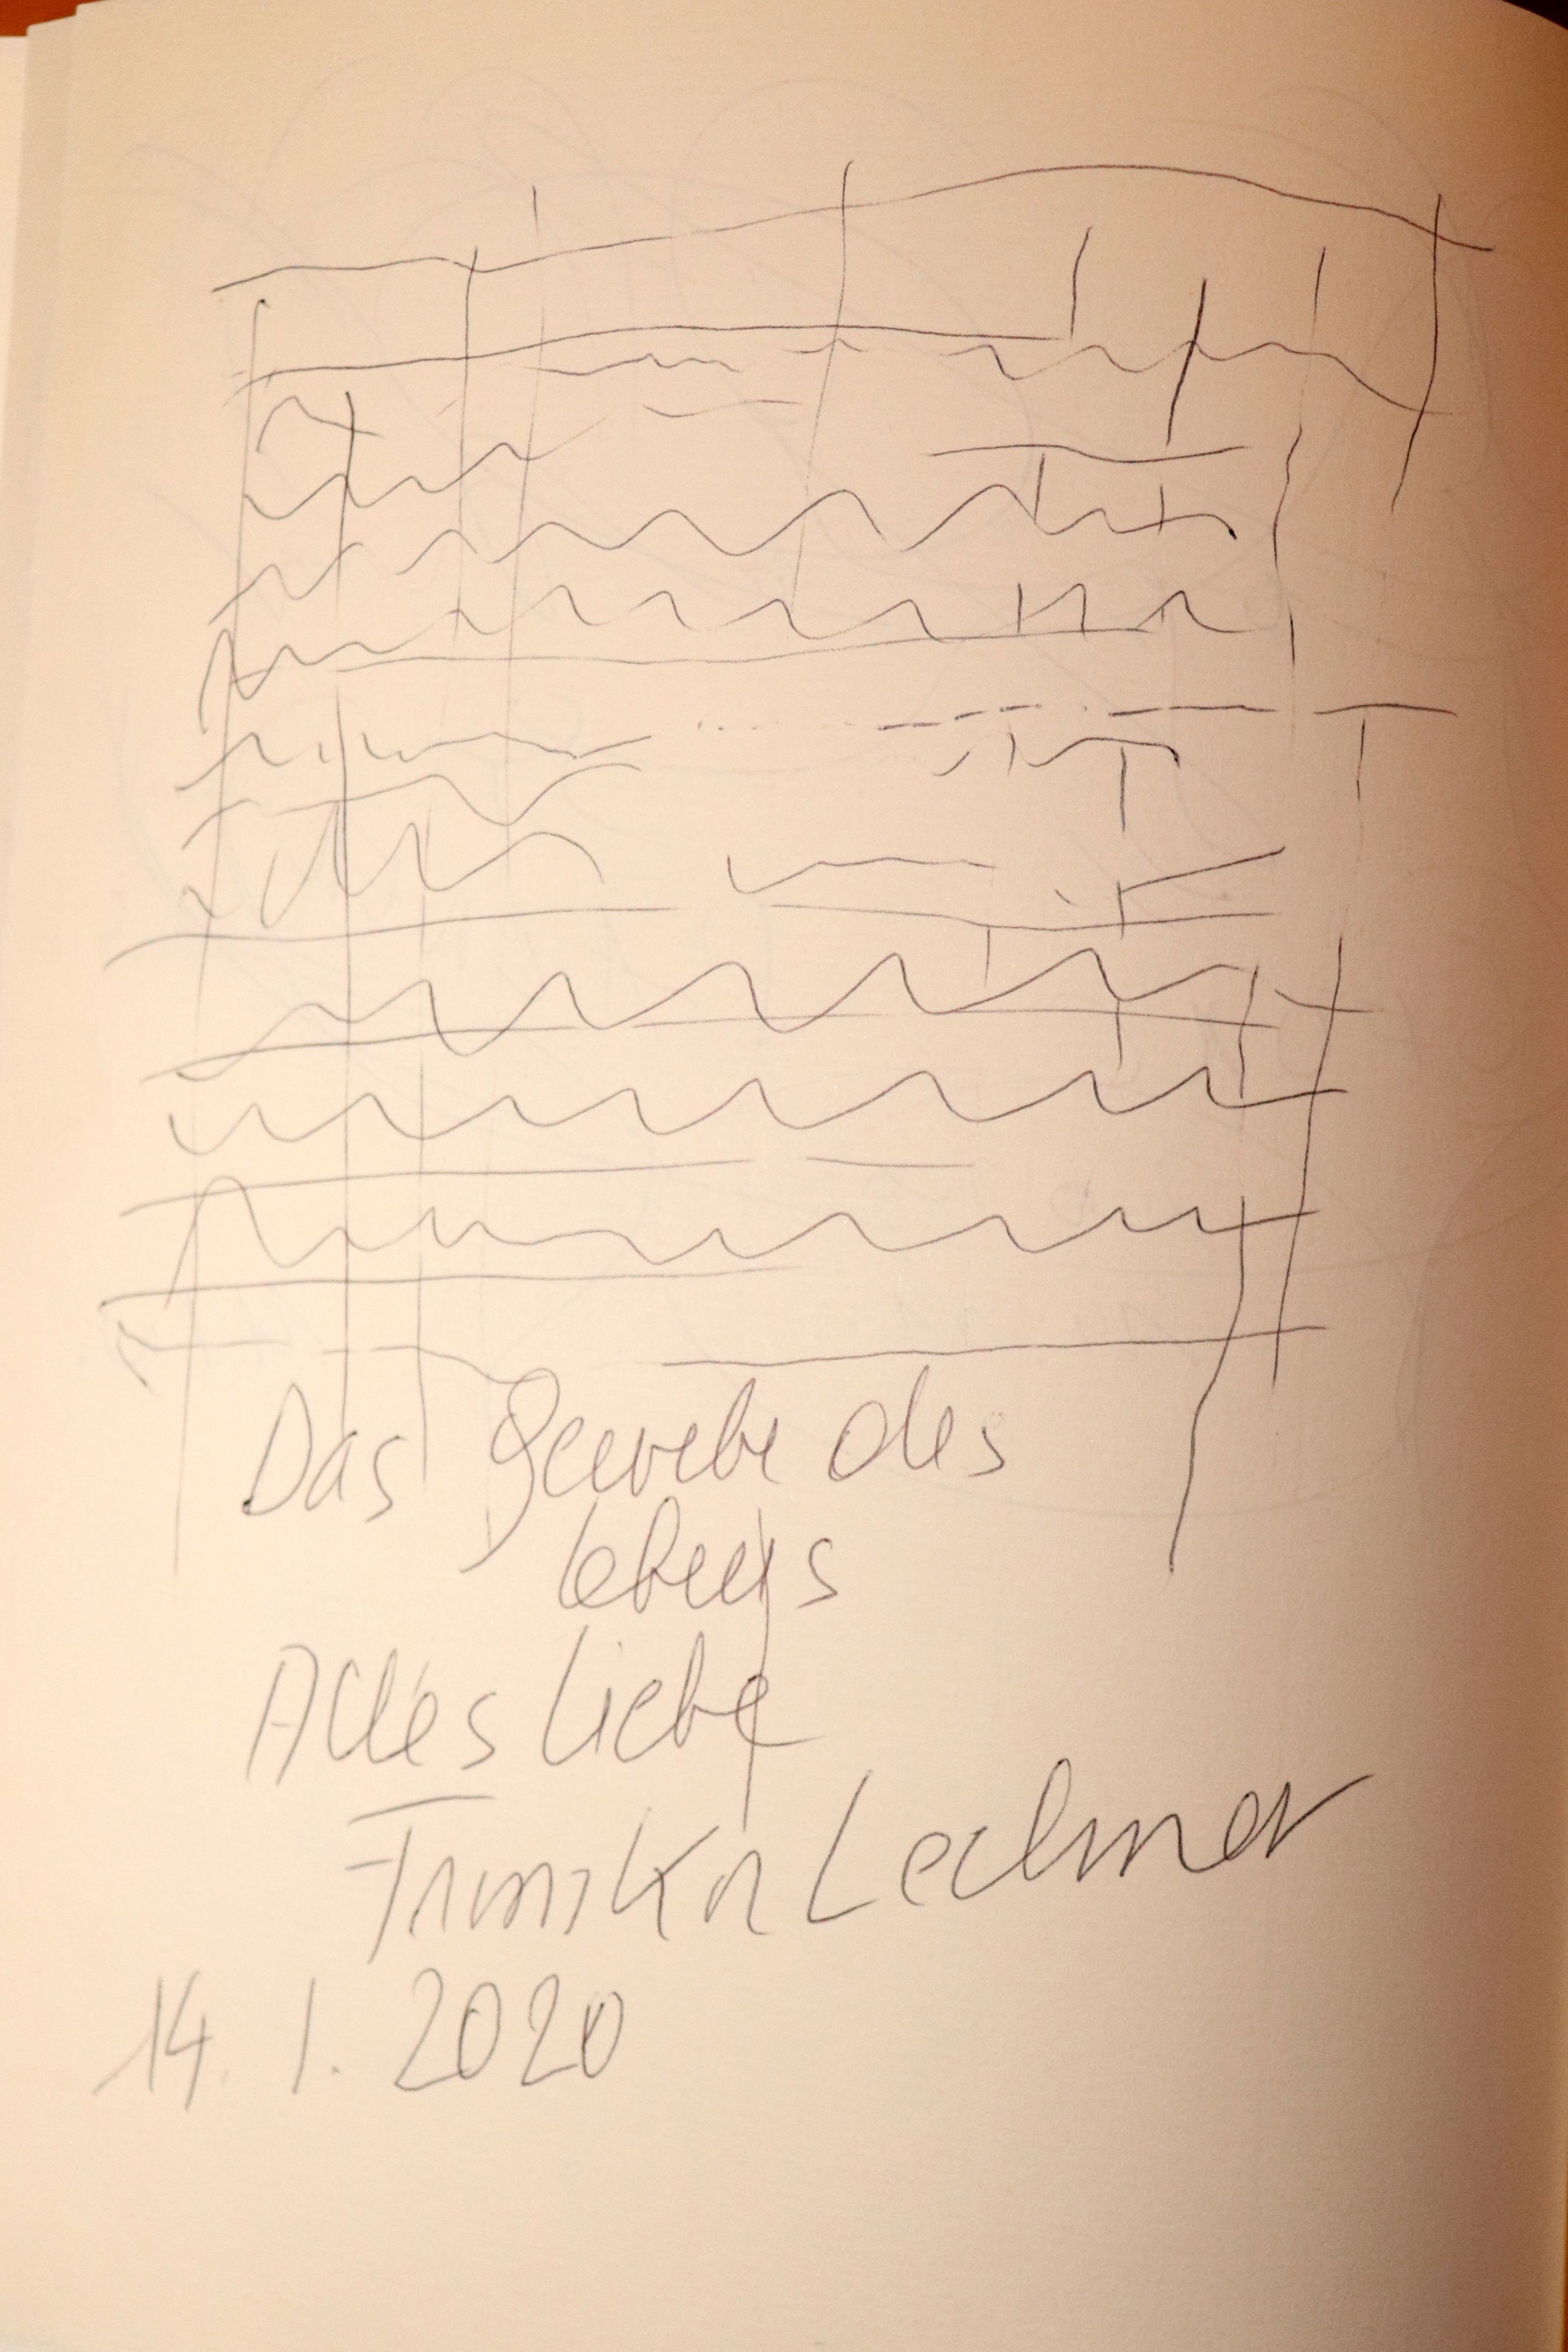 Das Gewebe des
Lebens
Alles Liebe
Franziska Lechner
14. 1. 2020